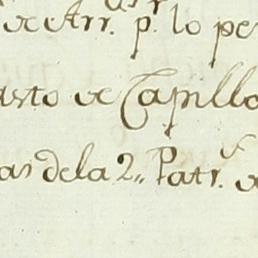 de Arr. p.r lo pe
asto de Capillo
as de la 2,, Patr.s